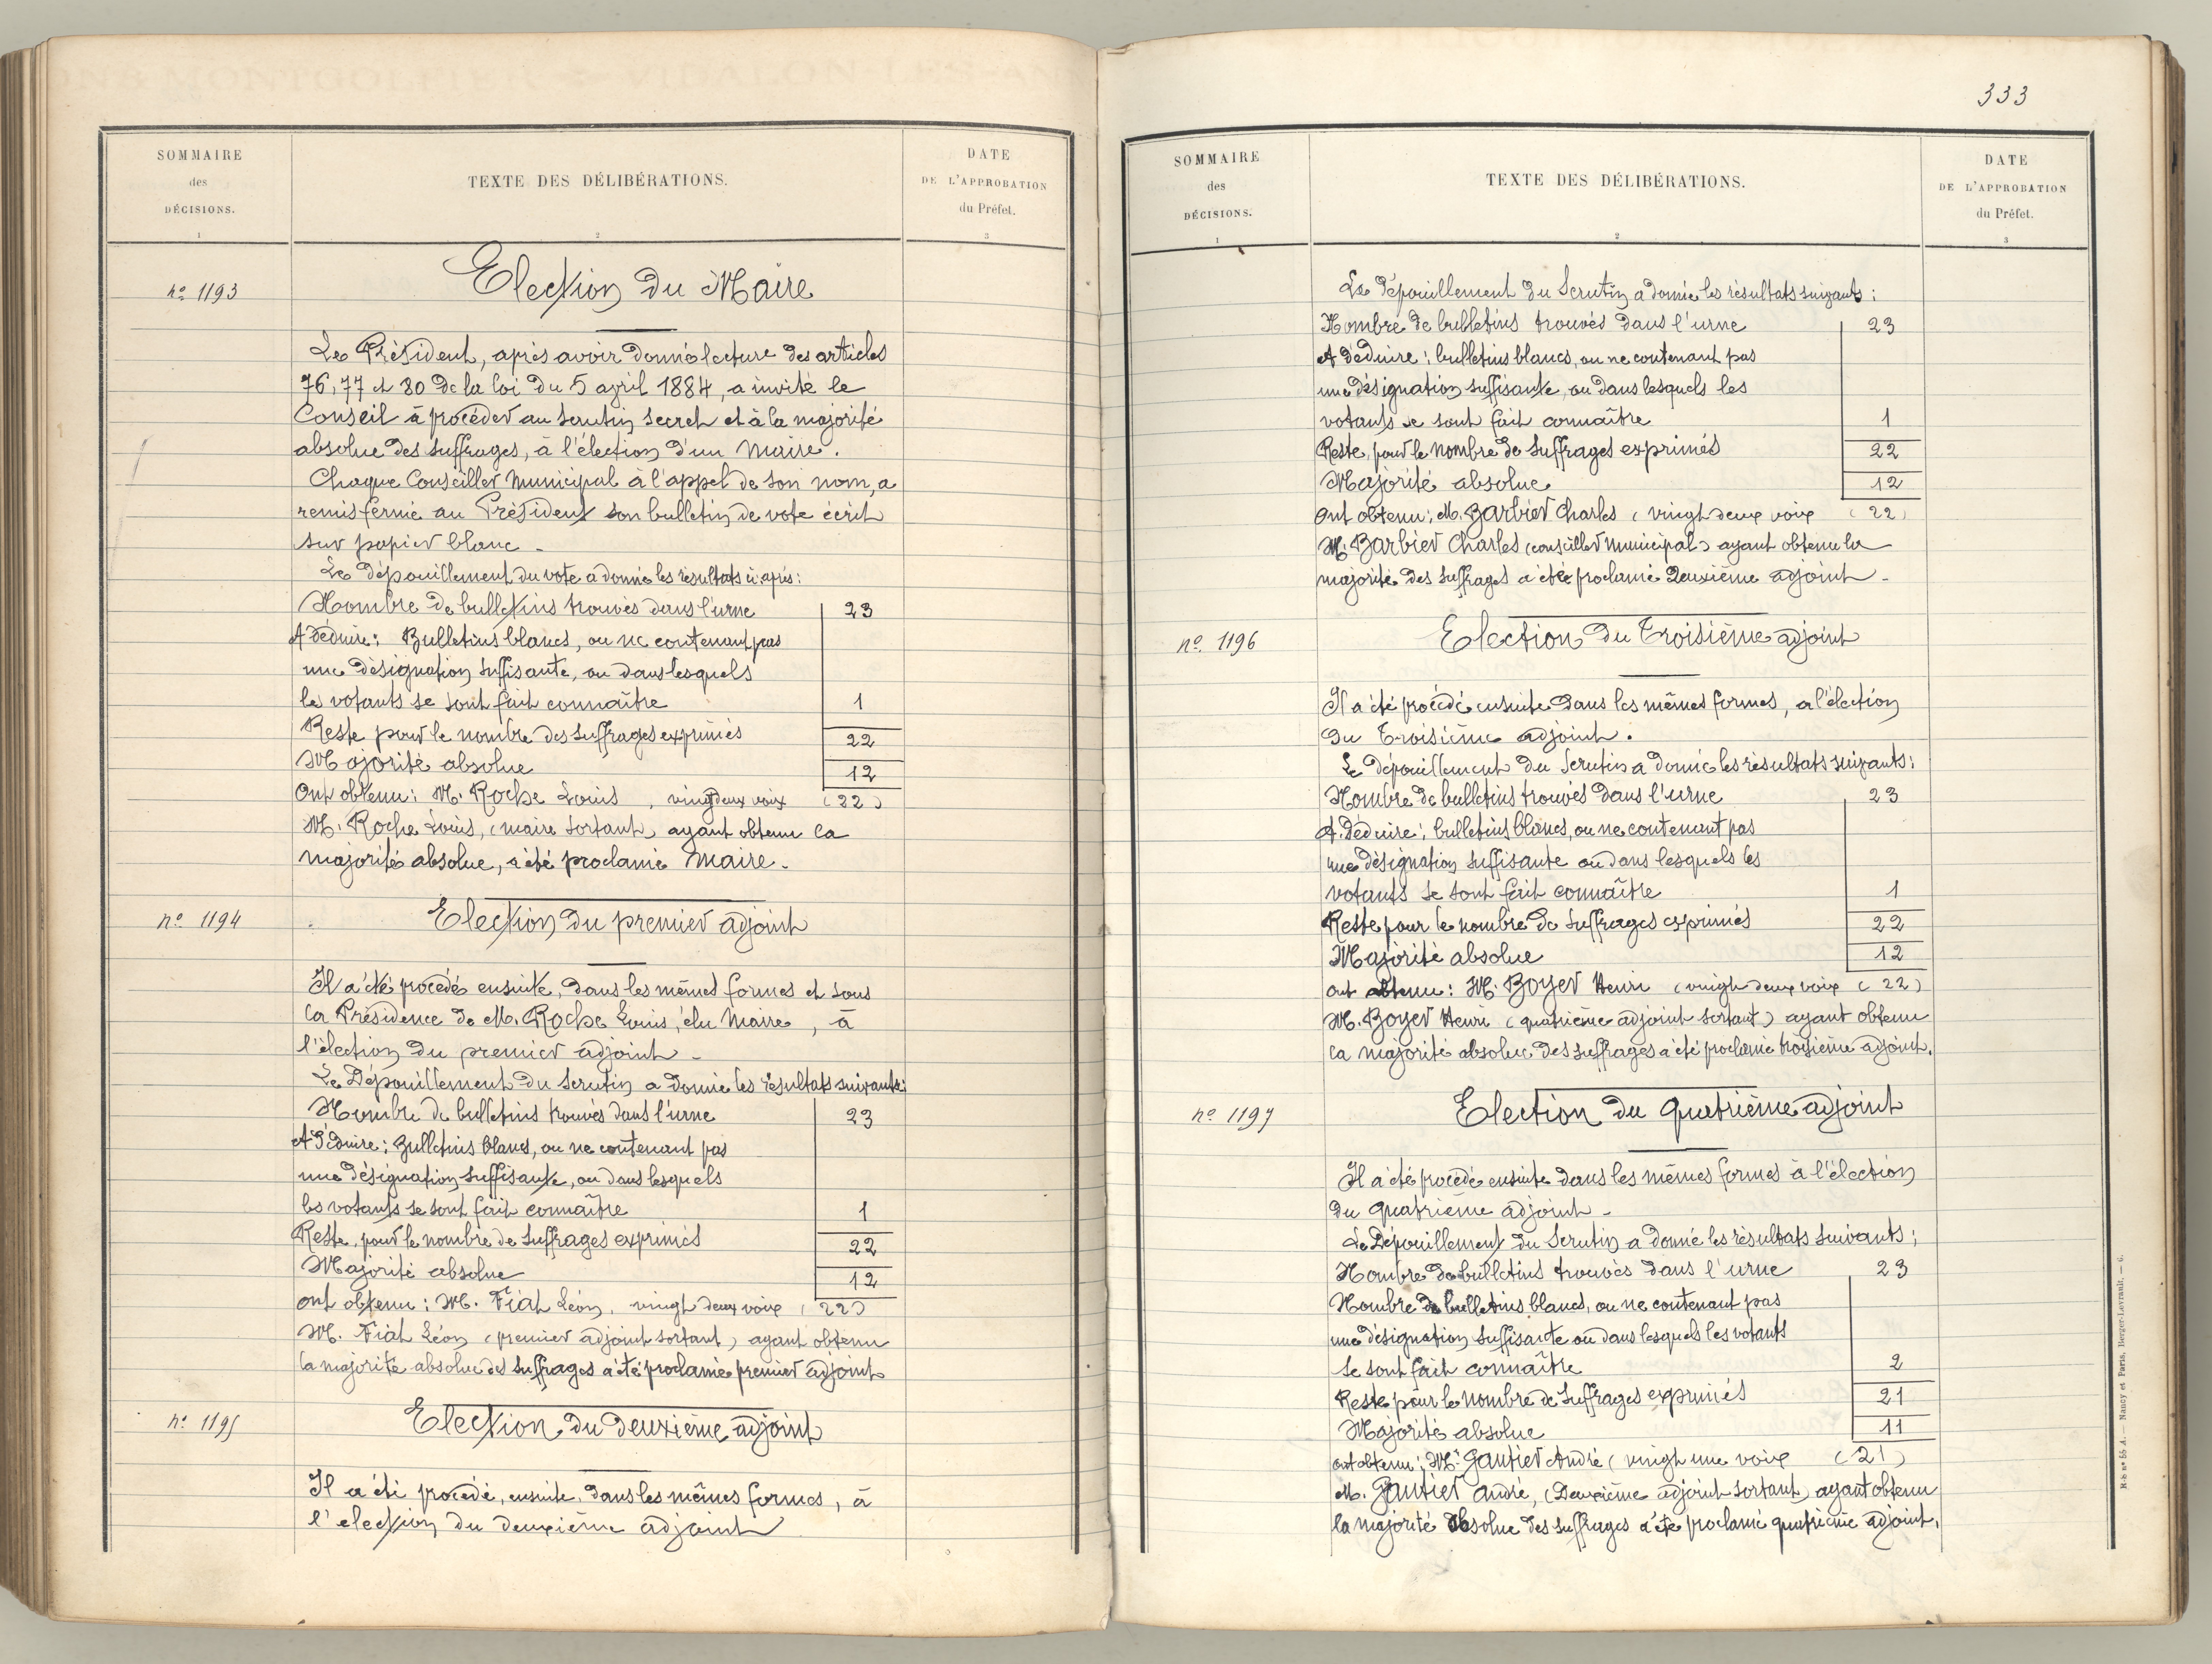 SOMMAIRE
des
DÉCISIONS.
1
TEXTE DES DÉLIBÉRATIONS.
2
DATE
DE L'APPROBATION
du Préfet.
3
nº 1193
Election du Maire
Le Président, après avoir donné lecture des articles
76, 77 et 80 de la loi du 5 avril 1884, a invité le
Conseil à procéder au scrutin secret et à la majorité
absolue des suffrages, à l'élection d'un Maire.
Chaque Conseiller Municipal à l'appel de son nom, a
remis fermé au Président son bulletin de vote écrit
sur papier blanc -
Le dépouillement du vote a donné les résultats ci-après:
Nombre de bulletins trouvés dans l'urne 23
A déduire: Bulletins blancs, ou ne contenant pas
une désignation suffisante, ou dans lesquels
les votants se sont fait connaître 1
Reste pour le nombre des suffrages exprimés 22
Majorité absolue 12
Ont obtenu: M. Roche Louis, vingt deux voix (22)
M. Roche Louis, (maire sortant) ayant obtenu la
majorité absolue, a été proclamé Maire.
nº 1194
Election du premier adjoint
Il a été procédé ensuite, dans les mêmes formes et sous
la Présidence de M. Roche Louis, élu Maire, à
l'élection du premier adjoint -
Le Dépouillement du Scrutin a donné les résultats suivants:
Nombre de bulletins trouvés dans l'urne 23
A déduire: Bulletins blancs, ou ne contenant pas
une désignation suffisante, ou dans lesquels
les votants se sont fait connaître 1
Reste, pour le nombre de suffrages exprimés 22
Majorité absolue 12
ont obtenu: M. Fiat Léon, vingt deux voix (22)
M. Fiat Léon (premier adjoint sortant) ayant obtenu
la majorité absolue des suffrages a été proclamé premier adjoint
nº 1195
Election du deuxième adjoint
Il a été procédé, ensuite, dans les mêmes formes, à
l'election du deuxième adjoint
333
SOMMAIRE
des
DÉCISIONS.
1
TEXTE DES DÉLIBÉRATIONS.
2
DATE
DE L'APPROBATION
du Préfet.
3
Le dépouillement du Scrutin a donné les résultats suivants:
Nombre de bulletins trouvés dans l'urne 23
A déduire: bulletins blancs, ou ne contenant pas
une désignation suffisante, ou dans lesquels les
votants se sont fait connaître 1
Reste, pour le nombre de suffrages exprimés 22
Majorité absolue 12
Ont obtenu: M. Barbier Charles (vingt deux voix (22)
M. Barbier Charles (conseiller municipal) ayant obtenu la
majorité des suffrages a été proclamé Deuxième adjoint -
nº 1196
Election du Troisième adjoint
Il a été procédé ensuite dans les mêmes formes, a l'élection
du Troisième adjoint.
Le dépouillement du Scrutin a donné les résultats suivants:
Nombre de bulletins trouvés dans l'urne 23
A. déduire: bulletins blancs, ou ne contenant pas
une désignation suffisante ou dans lesquels les
votants se sont fait connaître 1
Reste pour le nombre de suffrages exprimés 22
Majorité absolue 12
ont obtenu: M. Boyer Henri (vingt deux voix (22)
M. Boyer Henri (quatrième adjoint sortant) ayant obtenu
la majorité absolue des suffrages a été proclamé troisième adjoint.
nº 1197
Election du quatrième adjoint
Il a été procédé ensuite dans les mêmes formes à l'élection
du quatrième adjoint -
Le Dépouillement du Scrutin a donné les résultats suivants;
Nombre de bulletins trouvés dans l'urne 23
Nombre de bulletins blancs, ou ne contenant pas
une désignation suffisante ou dans lesquels les votants
se sont fait connaître 2
Reste pour le nombre de suffrages exprimés 21
Majorité absolue 11
ont obtenu: Mr. Gautier André (vingt une voix (21)
M. Gautier André, (Deuxième adjoint sortant) ayant obtenu
la majorité absolue des suffrages a été proclamé quatrième adjoint.
Nancy et Paris, Berger-Levrault. — 6.